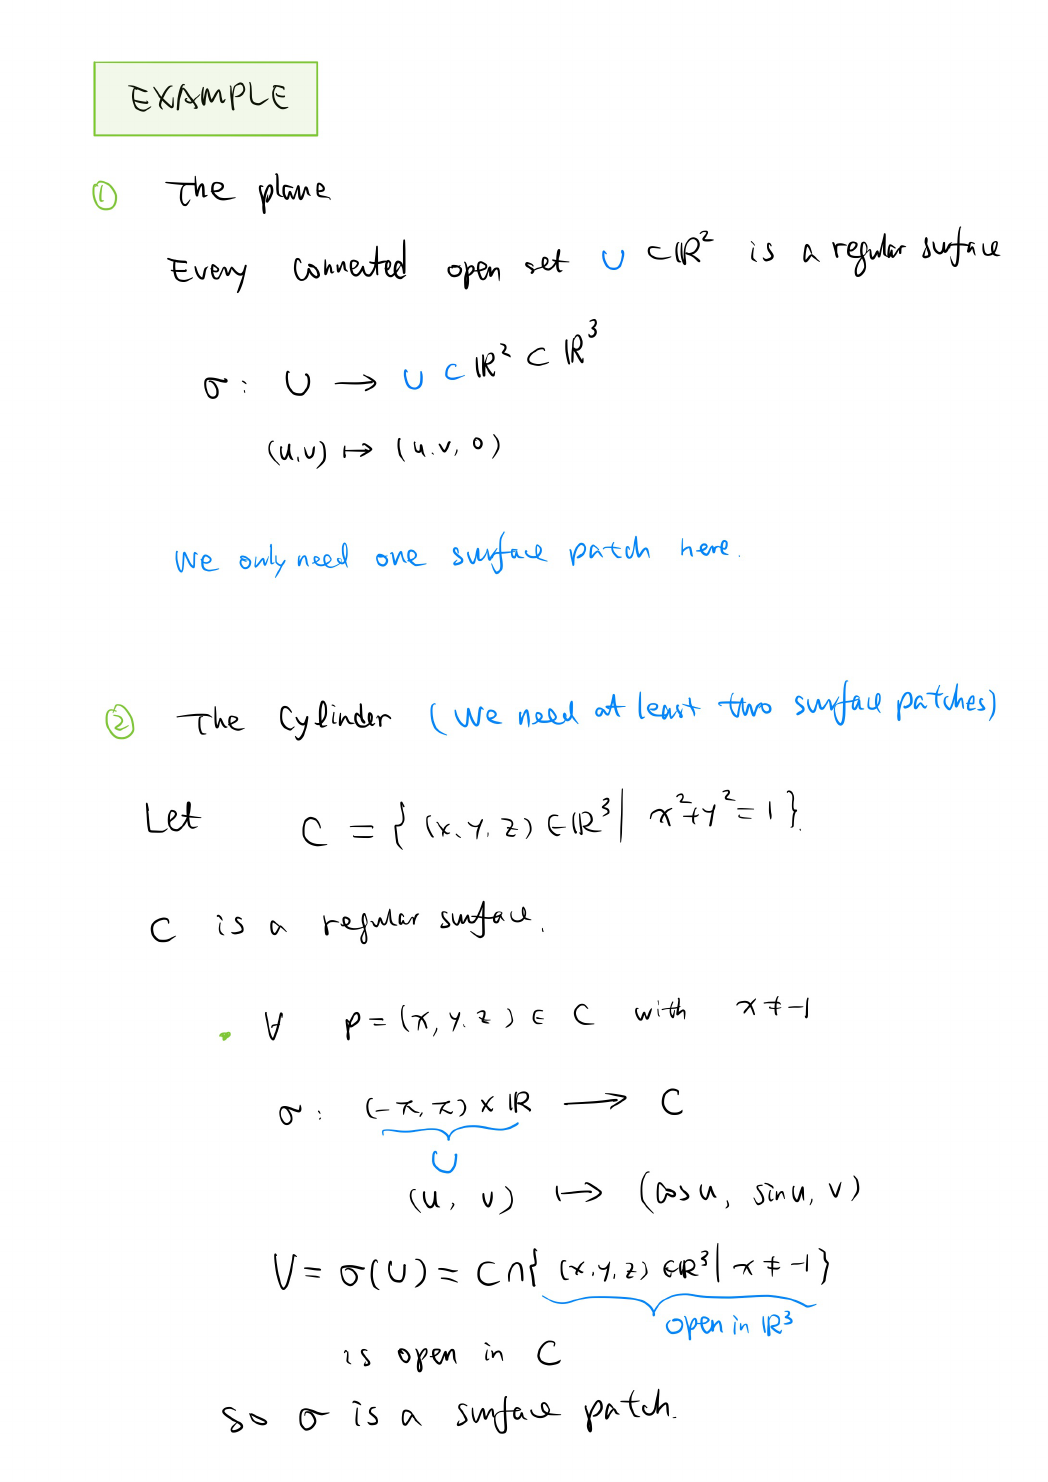 EXAMPLE
① The plane
Every connected open set U ⊂ ℝ² is a regular surface
σ: U → U ⊂ ℝ² ⊂ ℝ³
(u,v) ↦ (u.v, 0)
We only need one surface patch here.
② The Cylinder (We need at least two surface patches)
Let C = { (x, y, z) ∈ ℝ³ | x²+y²=1 }.
C is a regular surface.
• ∀ p = (x, y. z) ∈ C with x ≠ -1
σ: (-π, π) × ℝ → C
U
(u, v) ↦ (cos u, sin u, v)
V = σ(U) = C ∩ { (x, y, z) ∈ ℝ³ | x ≠ -1 }
open in ℝ³
is open in C
So σ is a surface patch.